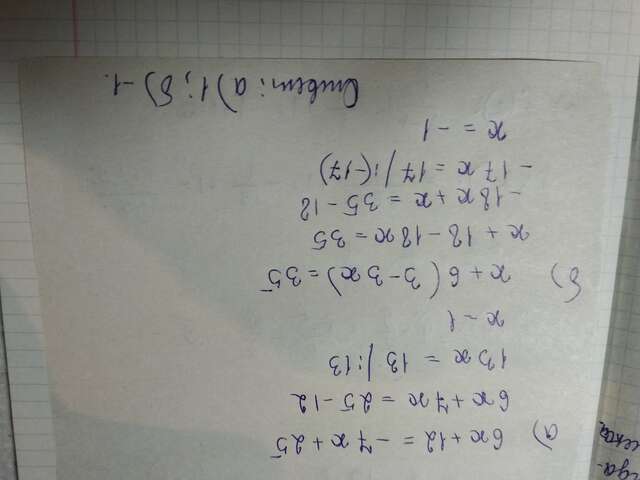 а) 6x + 12 = - 7x + 25
6x + 7x = 25 - 12
13x = 13 /:13
x - 1
б) x + 6(3 - 3x) = 35
x + 18 - 18x = 35
- 18x + x = 35 - 18
- 17x = 17 /:(-17)
x = - 1
Ответ: а) 1; б) -1.